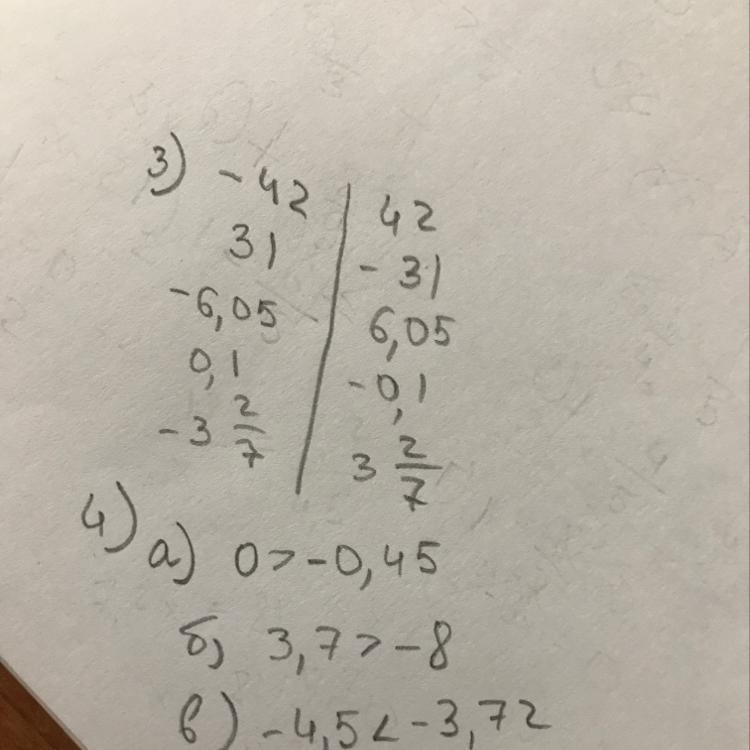 3) -42 | 42
31 | -31
-6,05 | 6,05
0,1 | -0,1
-3 2/7 | 3 2/7
4) а) 0 > -0,45
б) 3,7 > -8
в) -4,5 < -3,72